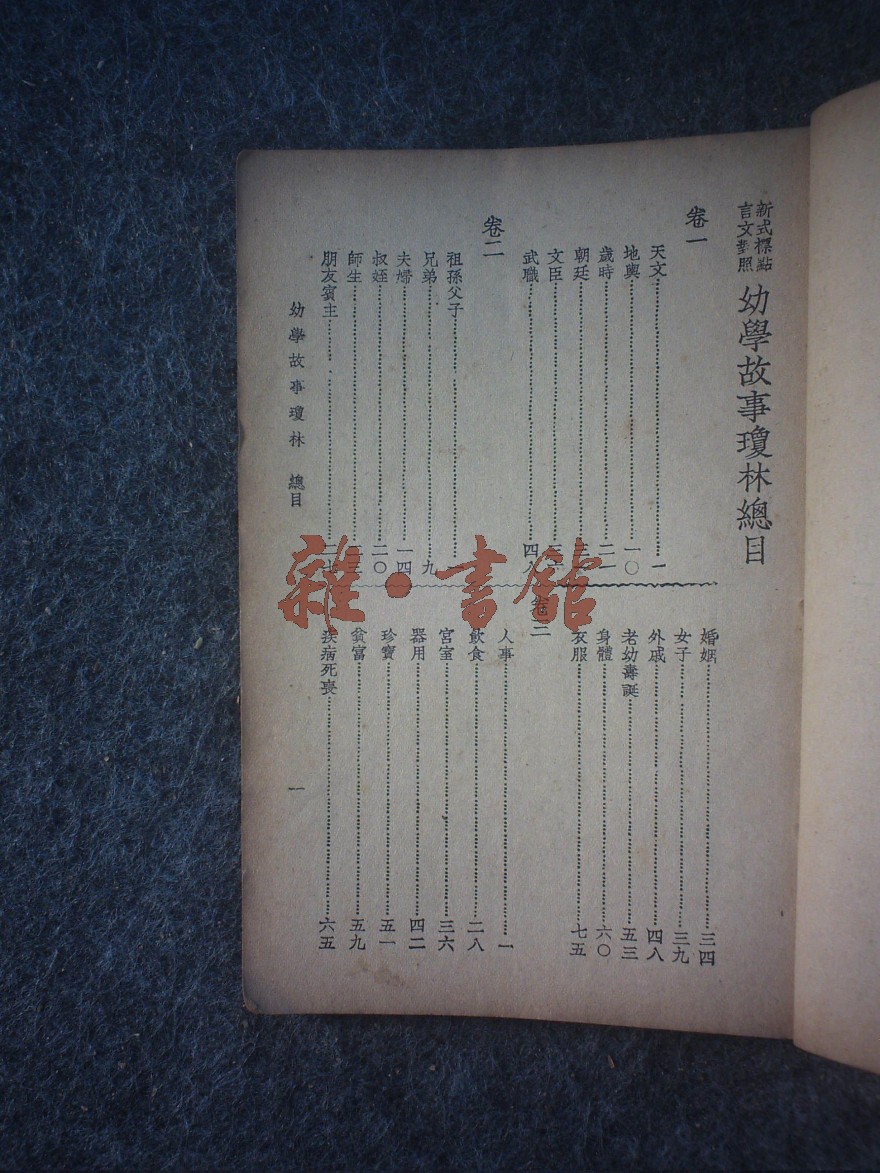 新式標點
言文對照
幼學故事瓊林總目
卷一
天文 一
地輿 一〇
歲時 二一
朝廷
文臣
武職 四八
卷二
祖孫父子 一
兄弟 九
夫婦 一四
叔姪 二〇
師生 二三
朋友賓主
婚姻 三四
女子 三九
外戚 四八
老幼壽誕 五三
身體 六〇
衣服 七五
卷三
人事 一
飲食 二八
宮室 三六
器用 四二
珍寶 五一
貧富 五九
疾病死喪 六五
幼學故事瓊林 總目
一
雜·書館